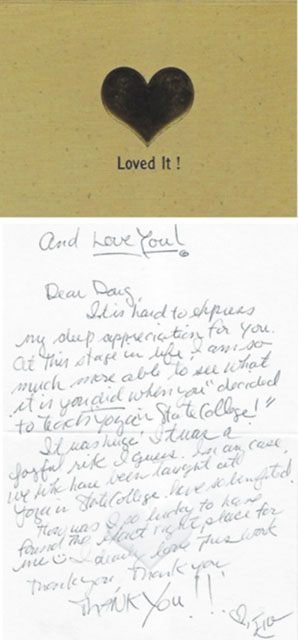 Loved It !
And Love You!
Dear Doug,
It is hard to express
my deep appreciation for you.
At this stage in life, I am so
much more able to see what
it is you did when you "decided
to teach yoga in State College!"
It was huge! It was a
joyful risk I guess. In any case,
we who have been taught at
Yoga in State College have so benefited.
How was I so lucky to have
found the exact right place for
me I love this work
Thank you, thank you
THANK YOU!!!